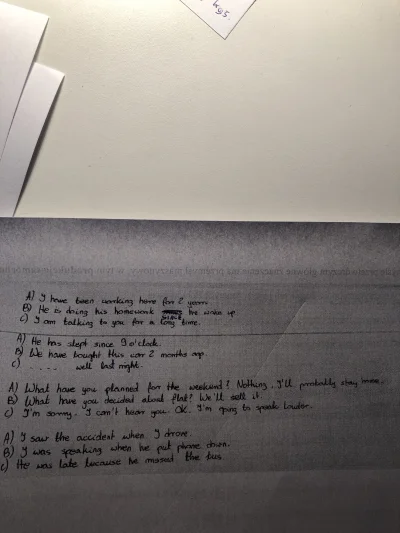 kgs.
A) I have been working here for 2 years.
B) He is doing his homework since he woke up.
C) I am talking to you for a long time.
A) He has slept since 9 o'clock.
B) We have bought this car 2 months ago.
C) ..... well last night.
A) What have you planned for the weekend? Nothing. I'll probably stay
B) What have you decided about flat? We'll sell it.
C) I'm sorry. I can't hear you. OK. I'm going to speak louder.
A) I saw the accident when I drove.
B) I was speaking when he put phone down.
C) He was late because he missed the bus